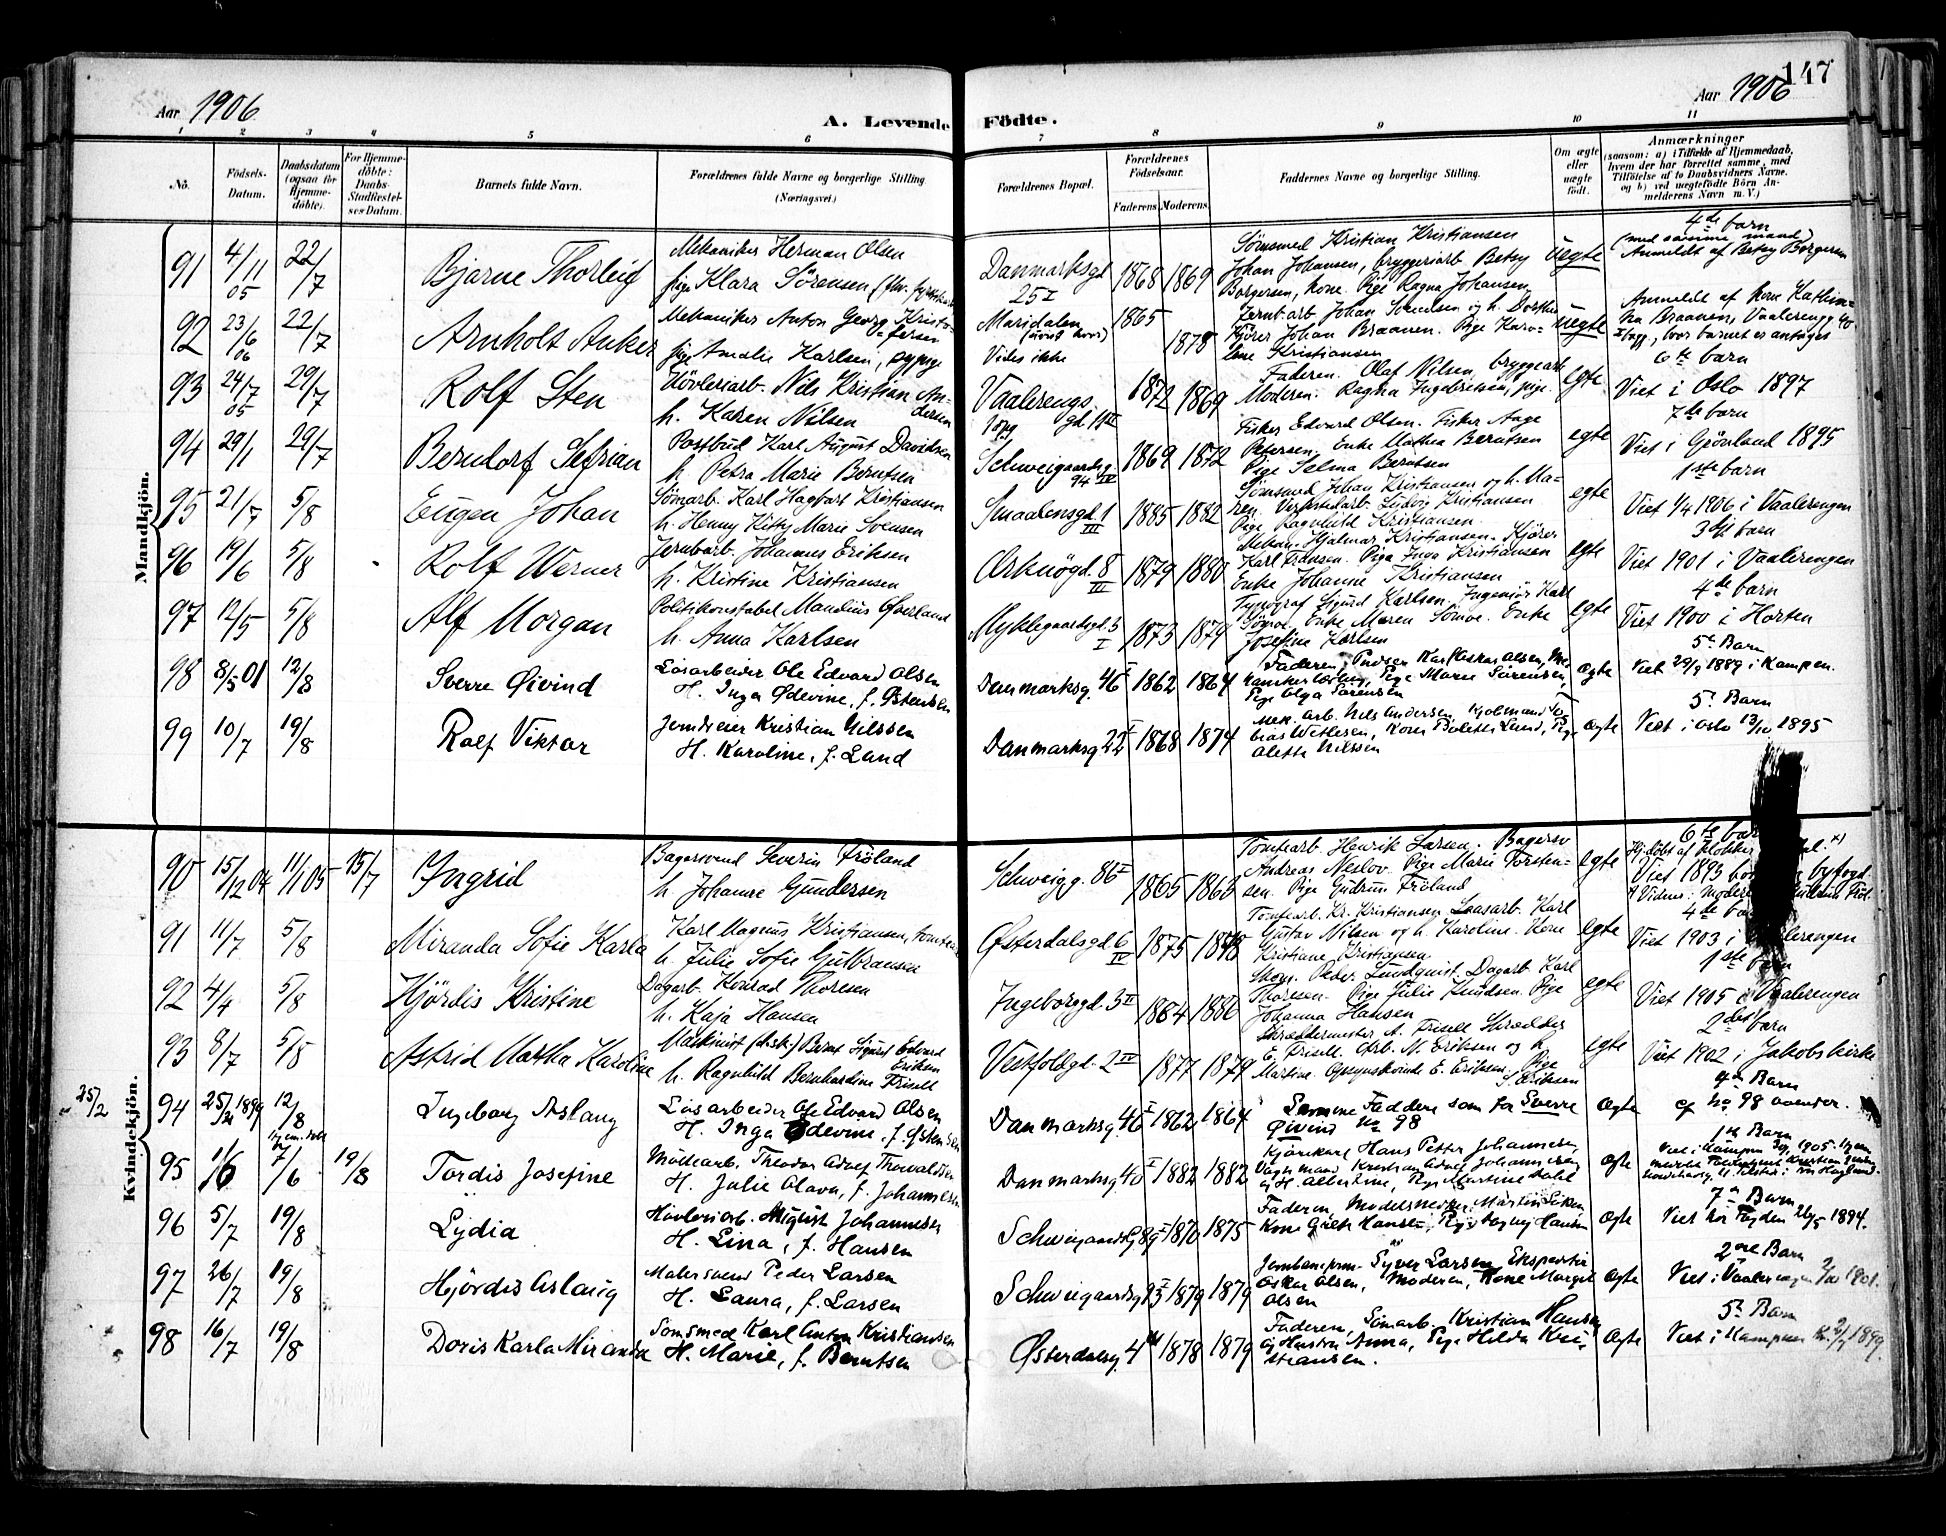 147
Aar 1906
A. Levende Födte.
Aar 1906
1 2 3 4 5 6 7 8 9 10 11
No.
Födsels-Datum.
Daabsdatum (ogsaa for Hjemme-döbte).
For Hjemme-döbte: Daabs-Stadfæstel-ses Datum.
Barnets fulde Navn.
Forældrenes fulde Navne og borgerlige Stilling (Næringsvei.)
Forældrenes Bopæl.
Forældrenes Födselsaar.
Faderens. Moderens.
Faddernes Navne og borgerlige Stilling.
Om ægte eller uægte födt.
Anmærkninger
(saasom: a) i Tilfælde af Hjemmedaab, hvem der har forrettet samme, med Tilföielse af to Daabsvidners Navne. og b) ved uægtefödte Börn An-melderens Navn m. V.)
Mandkjön.
91 4/11 05 22/7 Bjarne Thorleif
Mekaniker Herman Olsen
pige Klara Sörensen
Danmarksgd 25 I 1868 1869
Sömsmed Kristian Kristiansen
Johan Johansen, bryggeriarb Betsy
Borgersen, kone. Pige Ragna Johansen
uegte
4de barn
(med samme mand)
Anmeldt af Betsy Borgersen
92 23/6 06 22/7 Arnholt Anker
Mekaniker Anton Georg Kristofersen
pige Amalie Karlsen
Maridalen
Vides ikke
1865 1878
Kjörer Johan Braanen. Pige Karo-
line Kristiansen
uegte
Anmeldt af kone Kathin-
ka Braanen, Vaalerengg 40
hvor barnet er antaget
93 24/7 05 29/7 Rolf Sten
Hövleriarb. Nils Kristian Andersen
h. Karen Nilsen
Vaalerengs gd. 1872 1869
Faderen. Olaf Nilsen, bryggearb
Moderen. Ragna Ingebretsen, pige
egte
6te barn
Viet i Oslo 1897
94 29/1 29/7 Berndorf Sefrian
Postbud Karl August Davidsen
h. Petra Marie Berntsen
Schweigaardsg. 94 IV 1869 1872
Fisker Edvard Olsen. Fisker Aage
Petersen, Enke Mathea Berntsen
Pige Selma Berntsen
egte
7de barn
Viet i Grönland 1895
95 21/7 5/8 Eugen Johan
Sömarb. Karl Hagbart Kristiansen
h. Henny Kitty Marie Svensen
Smaalensgd 1 III 1885 1882
Sömsmed Johan Kristiansen og h. Ma-
ren. Verkstedarb. Ludvig Kristiansen
Pige Ragnhild Kristiansen
egte
1ste barn
Viet 1/4 1906 i Vaalerengen
96 19/6 5/8 Rolf Werner
Jernbarb. Johannes Eriksen
h. Kristine Kristiansen
Arknögd. 8 III 1879 1880
Mekan. Hjalmar Kristiansen. Kjörer
Karl Fransen. Pige Inga Kristiansen
Enke Johanne Kristiansen
egte
3die barn
Viet 1901 i Vaalerengen
97 12/5 5/8 Alf Morgan
Politikonstabel Mandius Öfverland
h. Anna Karlsen
Myklegaardsgd. 5 I 1873 1879
Typograf Sigurd Karlsen. Ingeniör Karl
Sömoe. Enke Maren Sömoe. Enke
Josefine Karlsen
egte
4de barn
Viet 1900 i Horten
98 8/5 01 12/8 Sverre Øivind
Løsarbeider Ole Edvard Olsen
H. Inga Ødevine, f. Østensen
Danmarksg. 46 I 1862 1864
Faderen, Karl Oskar Olsen, Me-
kanikerlærling, Pige Marie Sørensen,
Pige Olga Sørensen
ægte
5te Barn
Viet 29/9 1889 i Kampen.
99 10/7 19/8 Rolf Viktor
Jerndreier Kristian Nilssen
H. Karoline, f. Lund
Danmarksg 22 I 1868 1874
Mek. arb. Nils Andersen,
Kone Bolette Lund, Pige
Alette Nilssen
ægte
5te Barn
Viet i Oslo 13/10 1895
Kvindekjön.
90 15/12 04 11/1 05 15/7 Ingrid
Bagersvend Severin Fröland
h. Johanne Gundersen
Schweigg. 86 I 1865 1863
Tomtearb. Henrik Larsen. Bagersv
Andreas Neslov. Pige Marie Torsten-
sen. Pige Gudrun Fröland
egte
6te barn
Hj.döbt af Klokker
Viet 1893 hos byfogd
91 11/7 5/8 Miranda Sofie Karla
Karl Magnus Kristiansen, tomtearb
h. Julie Sofie Gulbransen
Østerdalsgd. 6 IV 1875 1878
Tomtearb. Kr. Kristiansen Løsarb. Karl
Gustav Nilsen og h. Karoline. Kone
Kristiane Kristiansen
egte
4de barn
Viet 1903 i Vaalerengen
92 4/4 5/8 Hjördis Kristine
Dagarb. Konrad Thoresen
h. Kaja Hansen
Ingeborggd. 3 II 1884 1886
Skom. Peder Lundquist. Dagarb Karl
Thoresen. Pige Julie Knudsen. Pige
Johanna Hansen
egte
1ste barn
Viet 1905 i Vaalerengen
93 8/7 5/8 Astrid Martha Karoline
Maskinist (d.sk.) Bernt Sigurd Edvard Eriksen
h. Ragnhild Bernhardine Frisell
Vestfoldgd. 2 IV 1877 1879
Skræddermester A. Frisell Skrædder
E. Frisell. Arb. N. Eriksen og h.
Martine. Opsynskvinde E. Eriksen. Pige
S. Eriksen
egte
2det barn
Viet 1902 i Jakobs kirke
25/2
94 25/2 1899 12/8 Ingeborg Aslaug
Løsarbeider Ole Edvard Olsen
H. Inga Ødevine, f. Østensen
Danmarksg. 46 I 1862 1864
Samme Faddere som for Sverre
Øivind No 98
ægte
4de Barn
cf No 98 ovenfor.
95 1/6 hjem.døbt 7/6 19/8 Tordis Josefine
Møllearb. Theodor Adolf Thorvaldsen
H. Julie Olava, f. Johannesen
Danmarksg. 40 I 1882 1882
Kjørekarl Hans Petter Johannesen,
Vagtmand Kristian Adolf Johannesen
og H. Albertine, Pige Martine Dahl
ægte
1ste Barn
Viet i Kampen 1905.
96 5/7 19/8 Lydia
Høvleriarb. August Johannesen
H. Lina, f. Hansen
Schweigaardsg 89 I 1870 1875
Faderen Modelsnedker Martin Eriksen
Kone Gusta Hansen, Pige Dagny Hansen
ægte
7de Barn
Viet hos Fogden 26/5 1894.
97 26/7 19/8 Hjørdis Aslaug
Malersvend Peder Larsen
H. Laura, f. Larsen
Schweigaardsg 1879 1879
Syver Larsen, Ekspeditør
Oskar Olsen, Moderen, Kone Margit
Olsen
ægte
2det Barn
Viet i Vaalerengen 1901.
98 16/7 19/8 Doris Karla Miranda
Sømsmed Karl Anton Kristiansen
H. Marie, f. Berntsen
Østerdalsg. 4 1878 1879
Faderen Sømarb. Kristian Hansen
og Hustru Anna, Pige Hilda Kri-
stiansen.
ægte
5te Barn
Viet i Kampen K. 1899.